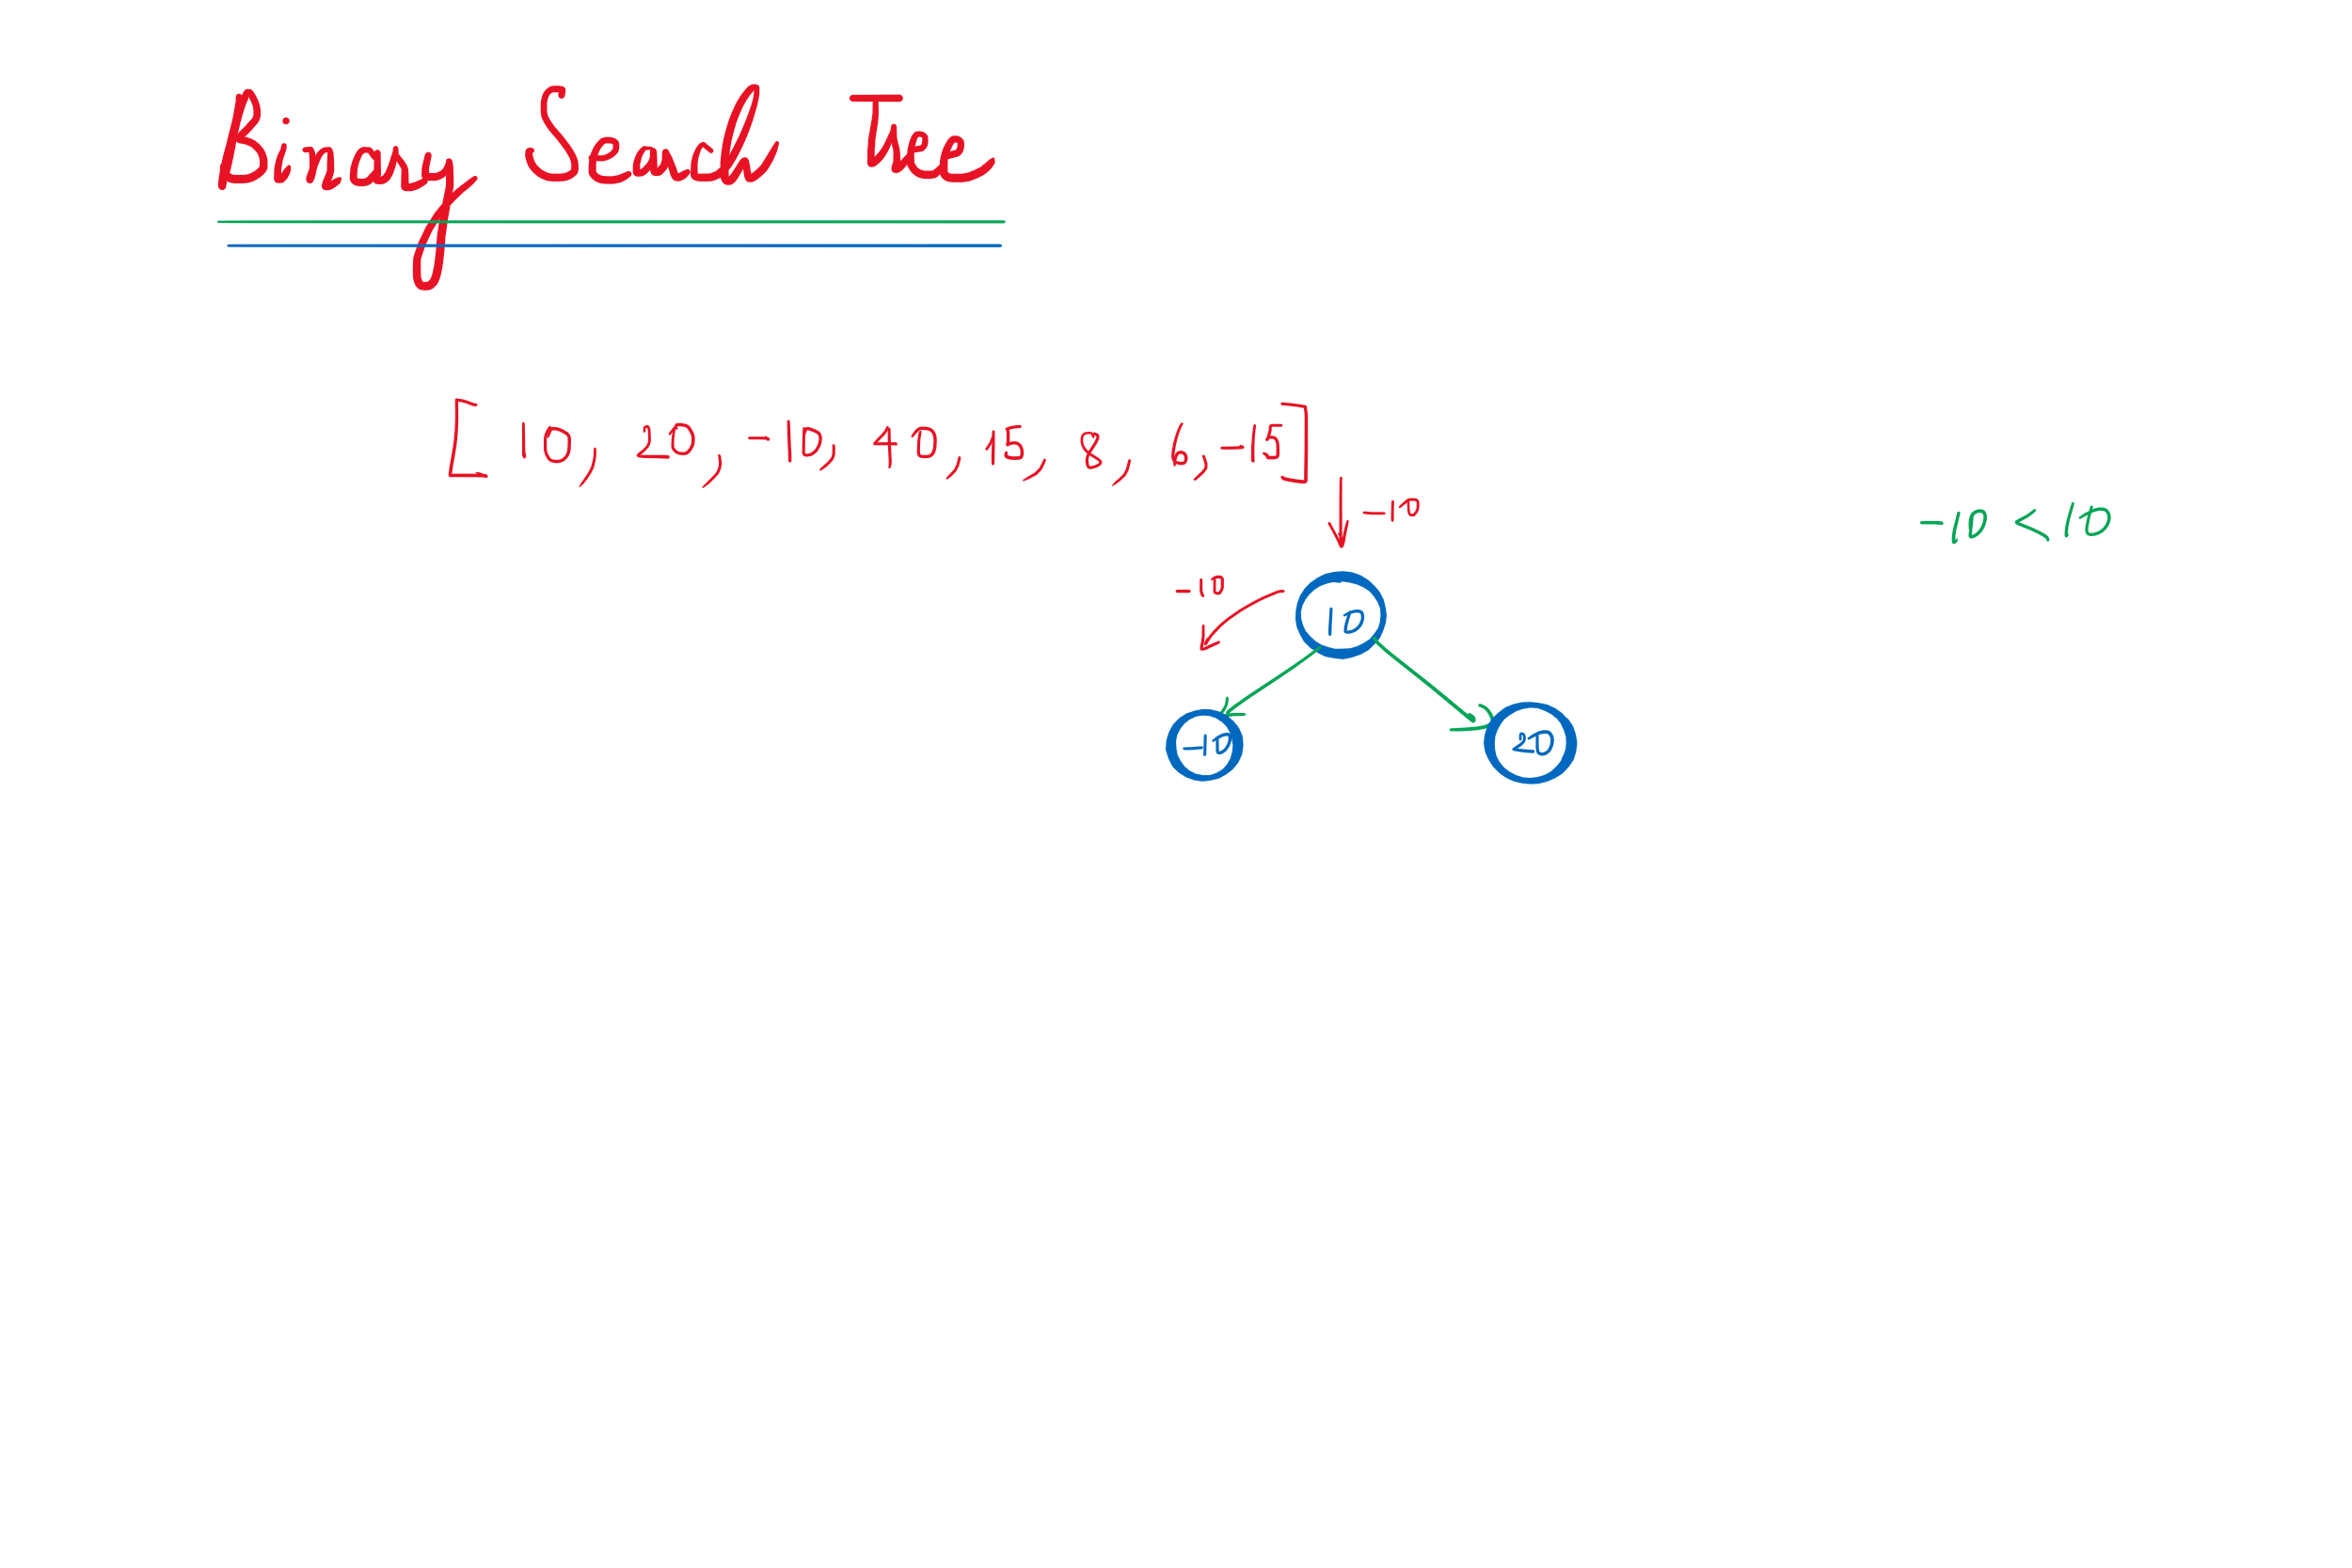 Binary Search Tree
[ 10, 20, -10, 40, 15, 8, 6, -15]
-10
-10 < 10
-10
10
-10
20